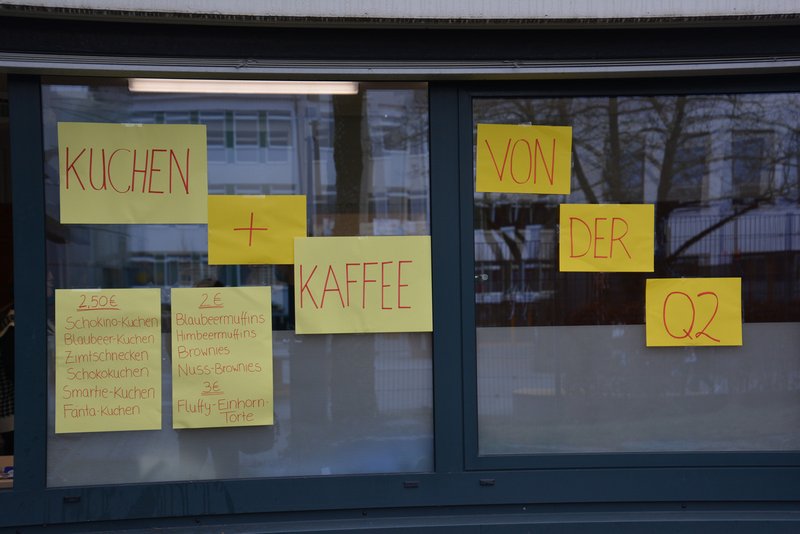 KUCHEN
+
KAFFEE
VON
DER
Q2
2,50€
Schokino-Kuchen
Blaubeer-Kuchen
Zimtschnecken
Schokokuchen
Smartie-Kuchen
Fanta-Kuchen
2€
Blaubeermuffins
Himbeermuffins
Brownies
Nuss-Brownies
3€
Fluffy-Einhorn-
Torte